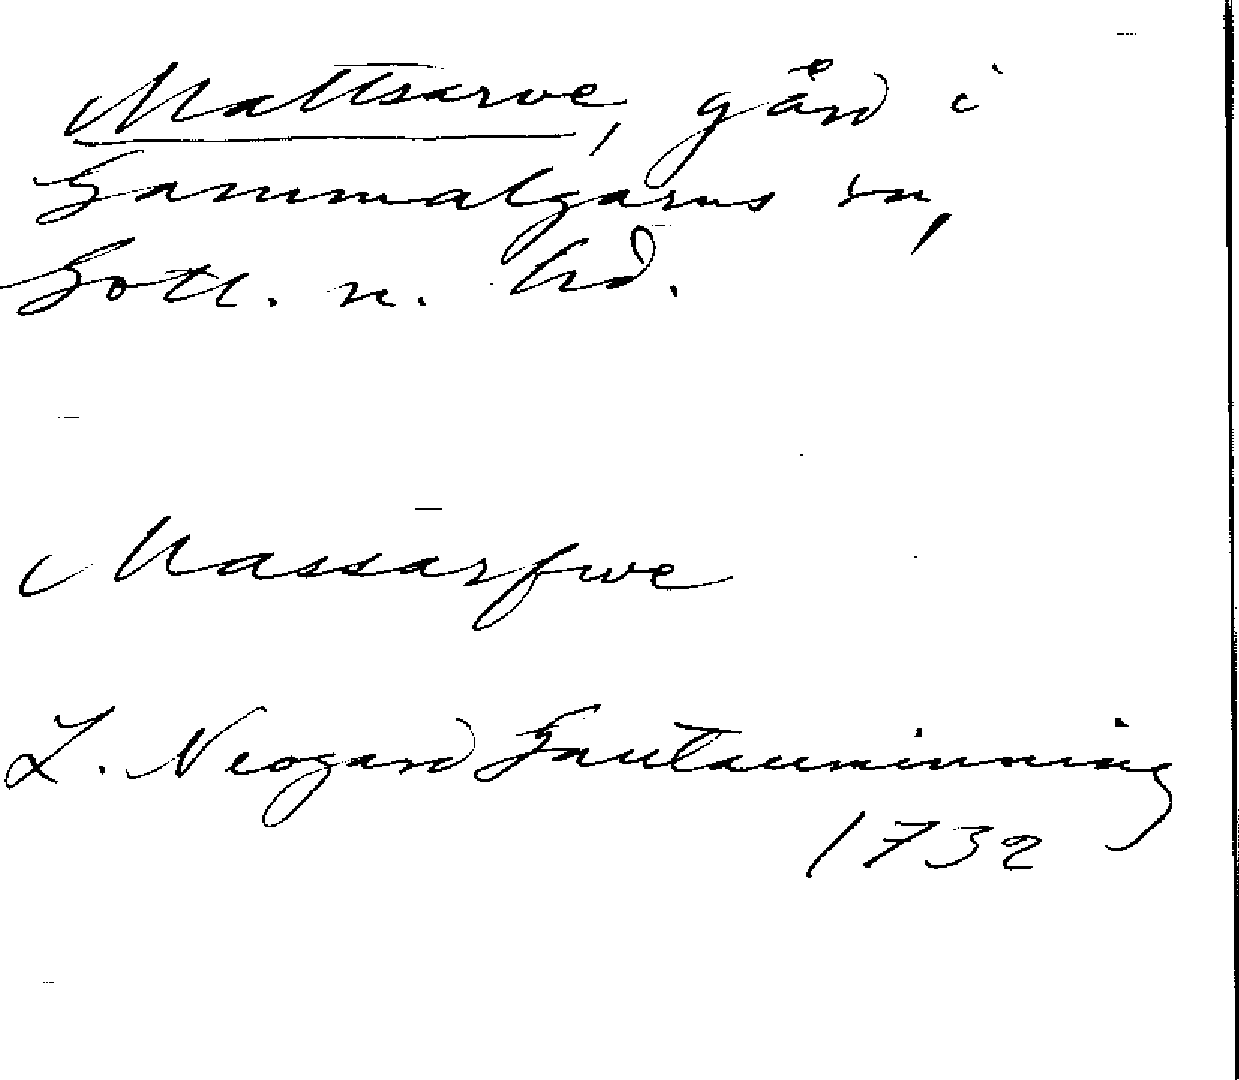 Mattsarve, gård i
Gammalgarns sn,
Gotl. n. hd.
Massarfwe
L. Neogard Gautauminning
1732